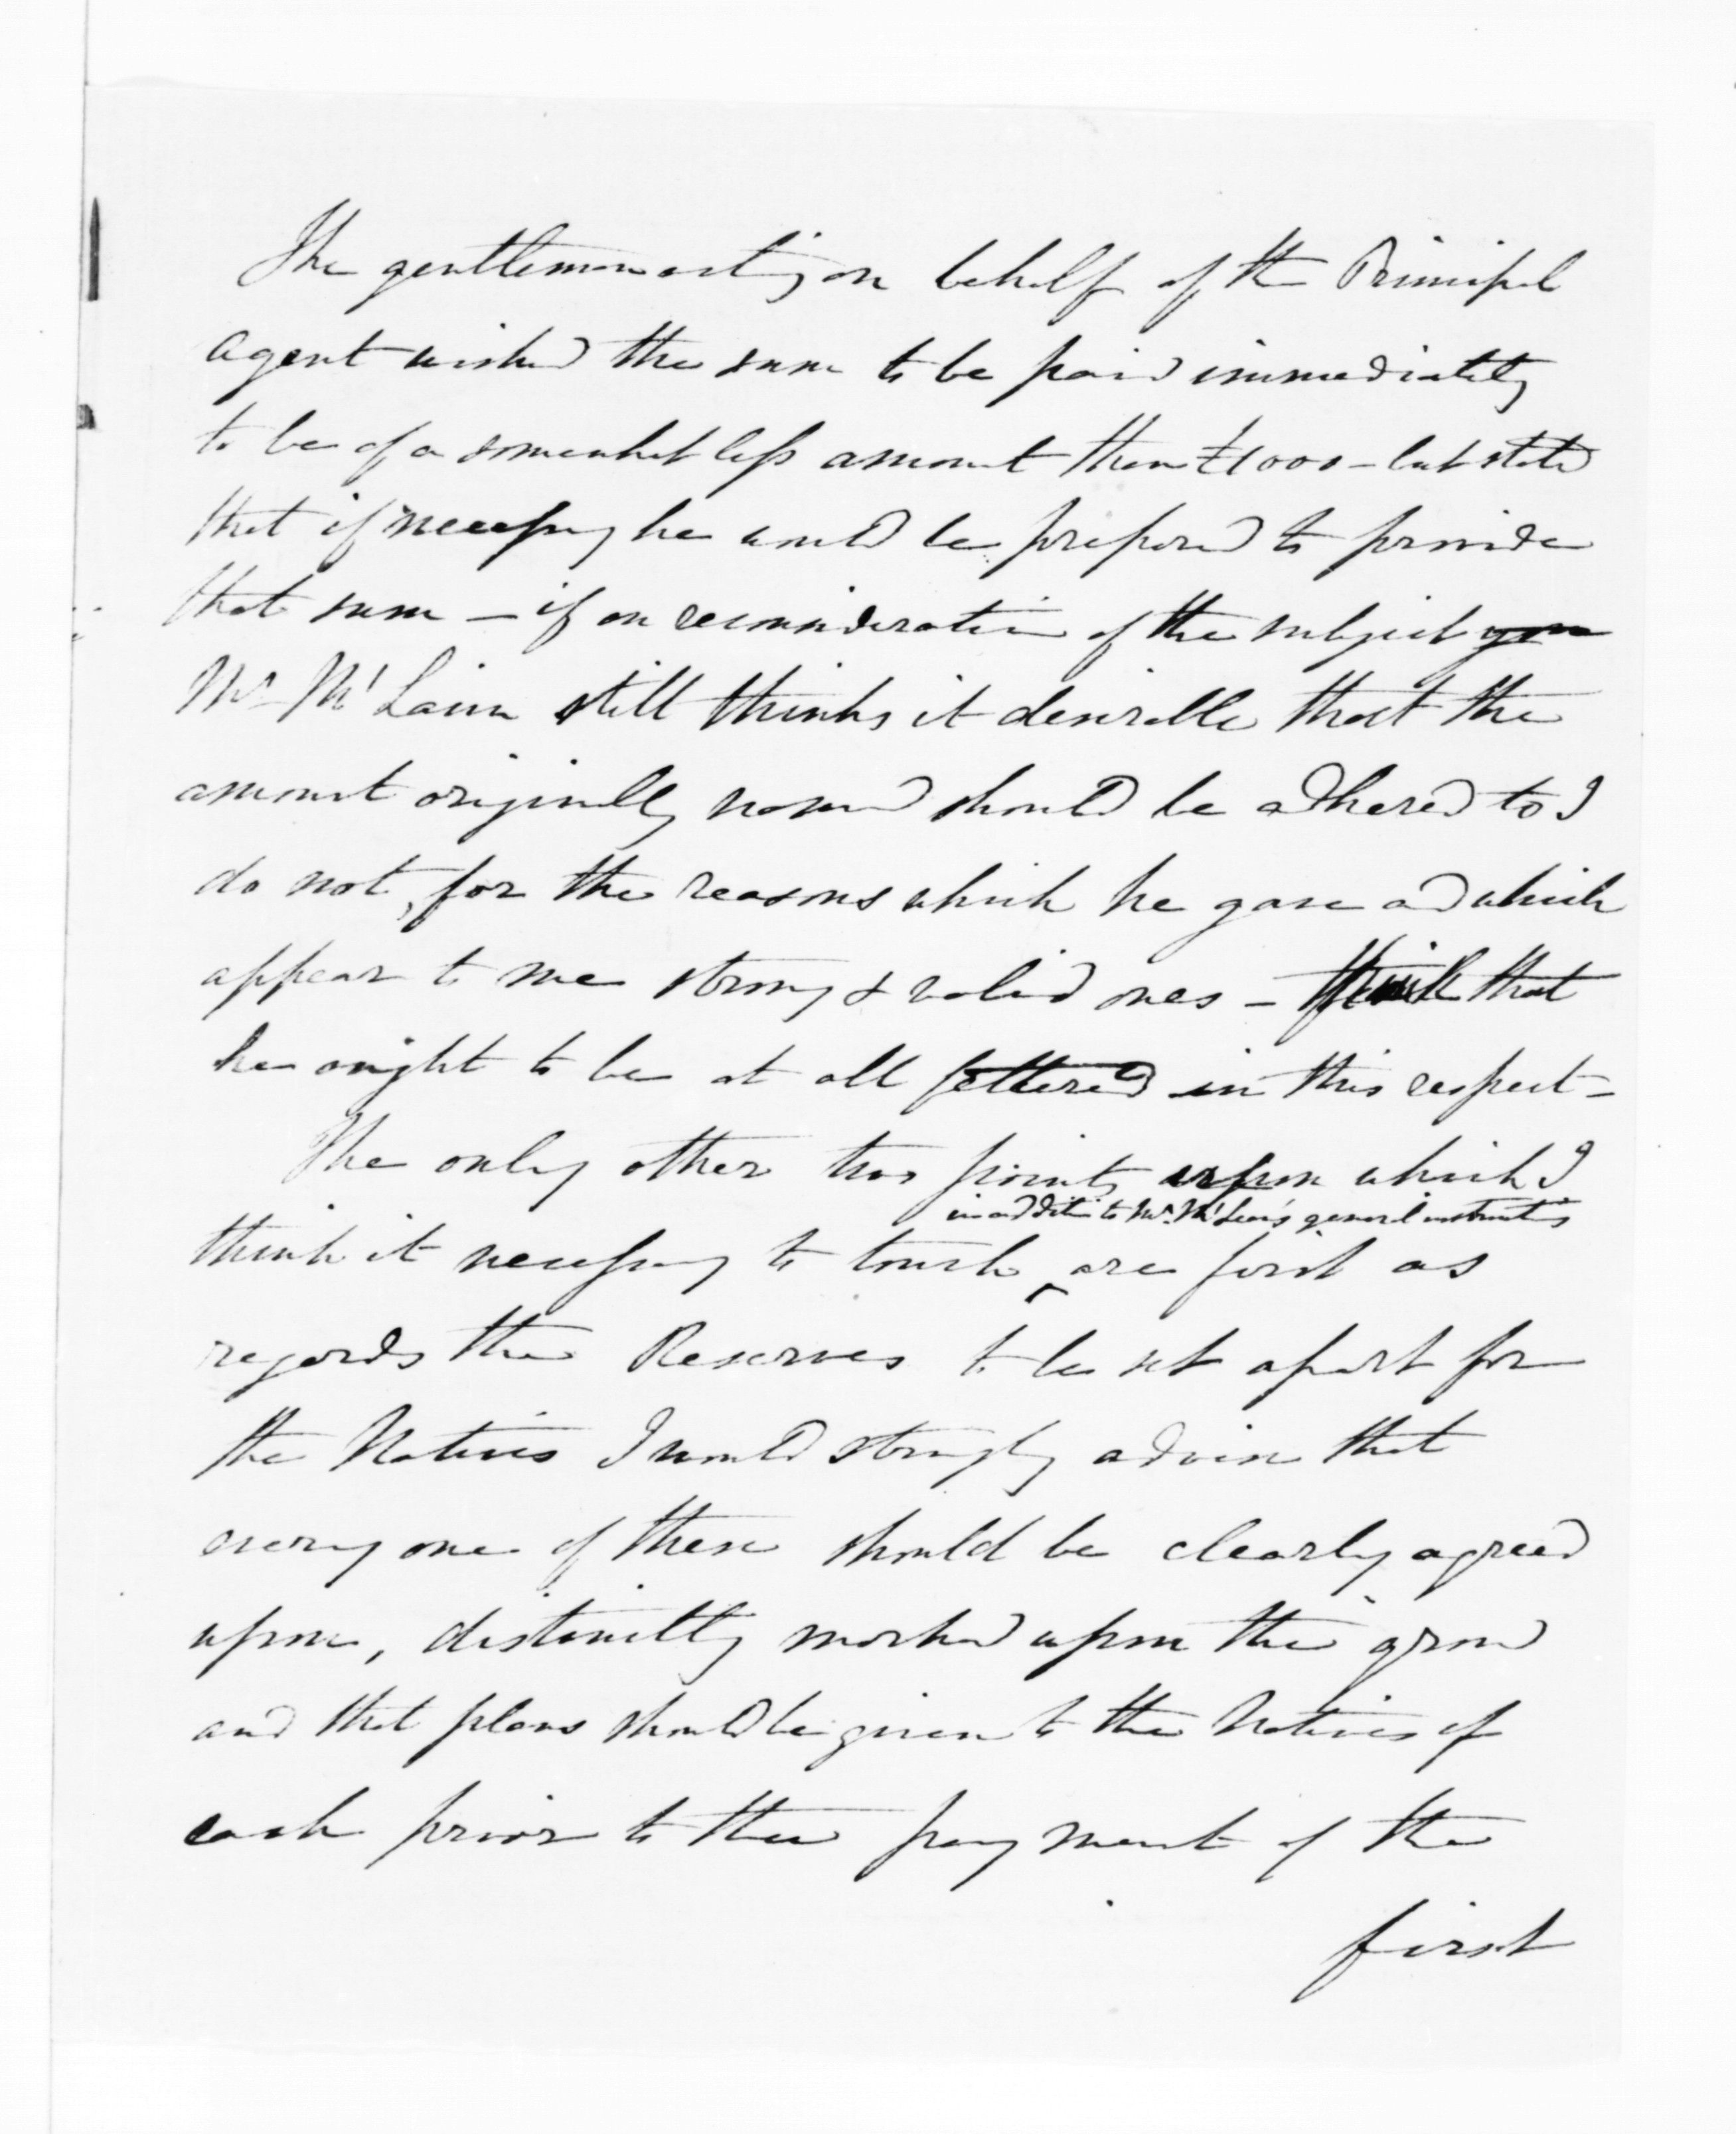 The gentleman acting on behalf of the Principal
agent wished the sum to be paid immediately
to be of a somewhat less amount than £1000 – but stated
that if necessary he would be prepared to provide
that sum – if on reconsideration of the subject you
Mr. McLean still thinks it desirable that the
amount originally named should be adhered to I
do not, for the reasons which he gave and which
appear to me strong & valid ones – think that
he ought to be at all fettered in this respect –
The only other two points upon which I
in addition to Mr. McLean's general instructions
think it necessary to touch are first as
regards the Reserves to be set apart for
the Natives I would strongly advise that
every one of these should be clearly agreed
upon, distinctly marked upon the ground
and that plans should be given to the Natives of
each prior to the payment of the
first